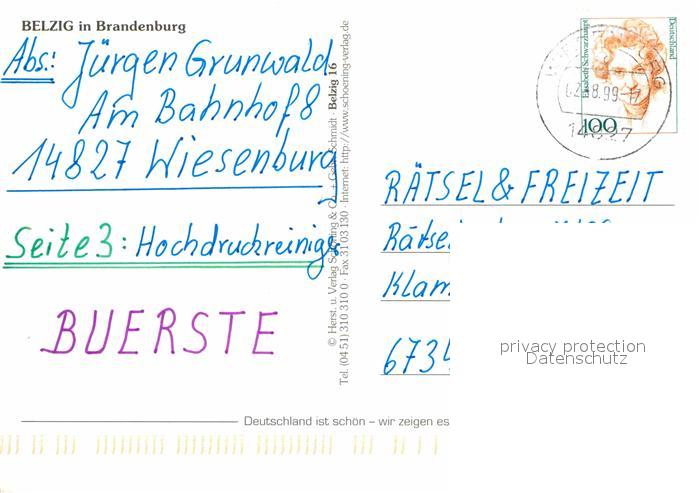 BELZIG in Brandenburg
Abs.: Jürgen Grunwald
Am Bahnhof 8
14827 Wiesenburg
Seite 3: Hochdruckreinigg
BUERSTE
© Herst. u. Verlag Schöning & Co. + Gebr. Schmidt · Belzig 16
Tel. (04 51) 310 310 0 · Fax 31 03 130 · Internet: http://www.schoening-verlag.de
Elisabeth Schwarzhaupt
Deutschland
100
02.8.99-17
14827
RÄTSEL & FREIZEIT
Rätse
Klam
6734
privacy protection
Datenschutz
Deutschland ist schön – wir zeigen es